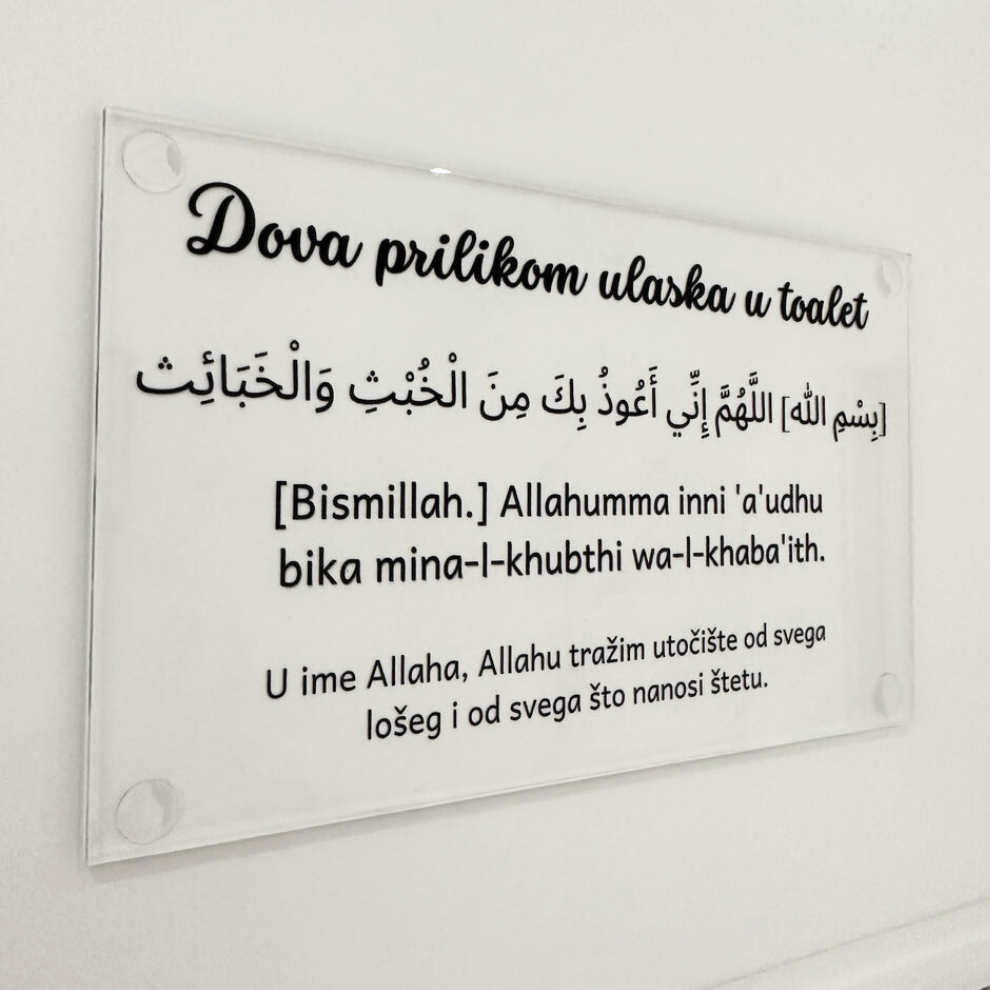 Dova prilikom ulaska u toalet
[بِسْمِ اللَّه] اللَّهُمَّ إِنِّي أَعُوذُ بِكَ مِنَ الْخُبْثِ وَالْخَبَائِث
[Bismillah.] Allahumma inni 'a'udhu
bika mina-l-khubthi wa-l-khaba'ith.
U ime Allaha, Allahu tražim utočište od svega
lošeg i od svega što nanosi štetu.